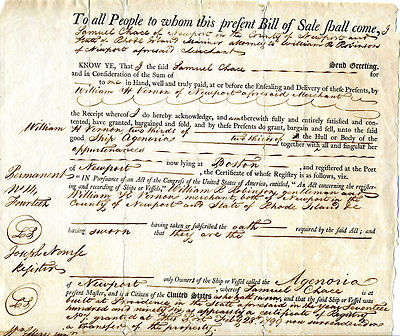 To all People to whom this present Bill of Sale shall come, I
Samuel Chace of Newport in the County of Newport and
State of Rhode Island Mariner attorney to William R Robinson
of Newport aforesaid Merchant
Send Greeting.
KNOW YE, That I the said Samuel Chace
and in Consideration of the Sum of
to me in Hand, well and truly paid, at or before the Ensealing and Delivery of these Presents, by
William H Vernon of Newport aforesaid Merchant
the Receipt whereof I do hereby acknowledge, and am therewith fully and entirely satisfied and con-
tented, have granted, bargained and sold, and by these Presents do grant, bargain and sell, unto the said
William H Vernon two thirds of the Hull or Body of the
good Ship Agenoria two thirds of together with all and singular her
appurtenances
now lying at Boston
of Newport, and registered at the Port
, the Certificate of whose Registry is as follows, viz.
Permanent
No 14
"IN Pursuance of an Act of the Congress of the United States of America, entitled, "An Act concerning the register-
ing and recording of Ships or Vessels, William R Robinson gentleman and
William H Vernon merchant, both of Newport in the
County of Newport and State of Rhode Island &c
having taken or subscribed the oath required by the said Act,
and having sworn that they are the
Joseph Nourse
Register
only Owners of the Ship or Vessel called the Agenoria
of Newport, whereof Samuel Chace is at
present Master, and is a Citizen of the United States as he hath sworn and that the said Ship or Vessel was
built at Providence in the State aforesaid in the year Seventeen
hundred and ninety six as appears by a certificate of Registry
No granted at 28 1797 now
a transfer of the property